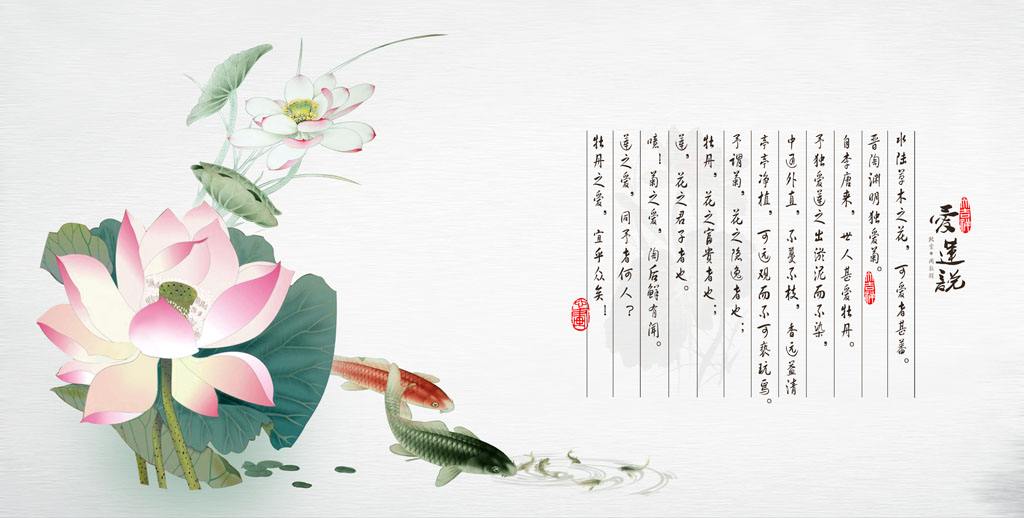 愛蓮說
水陆草木之花，可爱者甚蕃。
晋陶渊明独爱菊。
自李唐来，世人甚爱牡丹。
予独爱莲之出淤泥而不染，
中通外直，不蔓不枝，香远益清
亭亭净植，可远观而不可亵玩焉。
予谓菊，花之隐逸者也；
牡丹，花之富贵者也；
莲，花之君子者也。
噫！菊之爱，陶后鲜有闻。
莲之爱，同予者何人？
牡丹之爱，宜乎众矣！